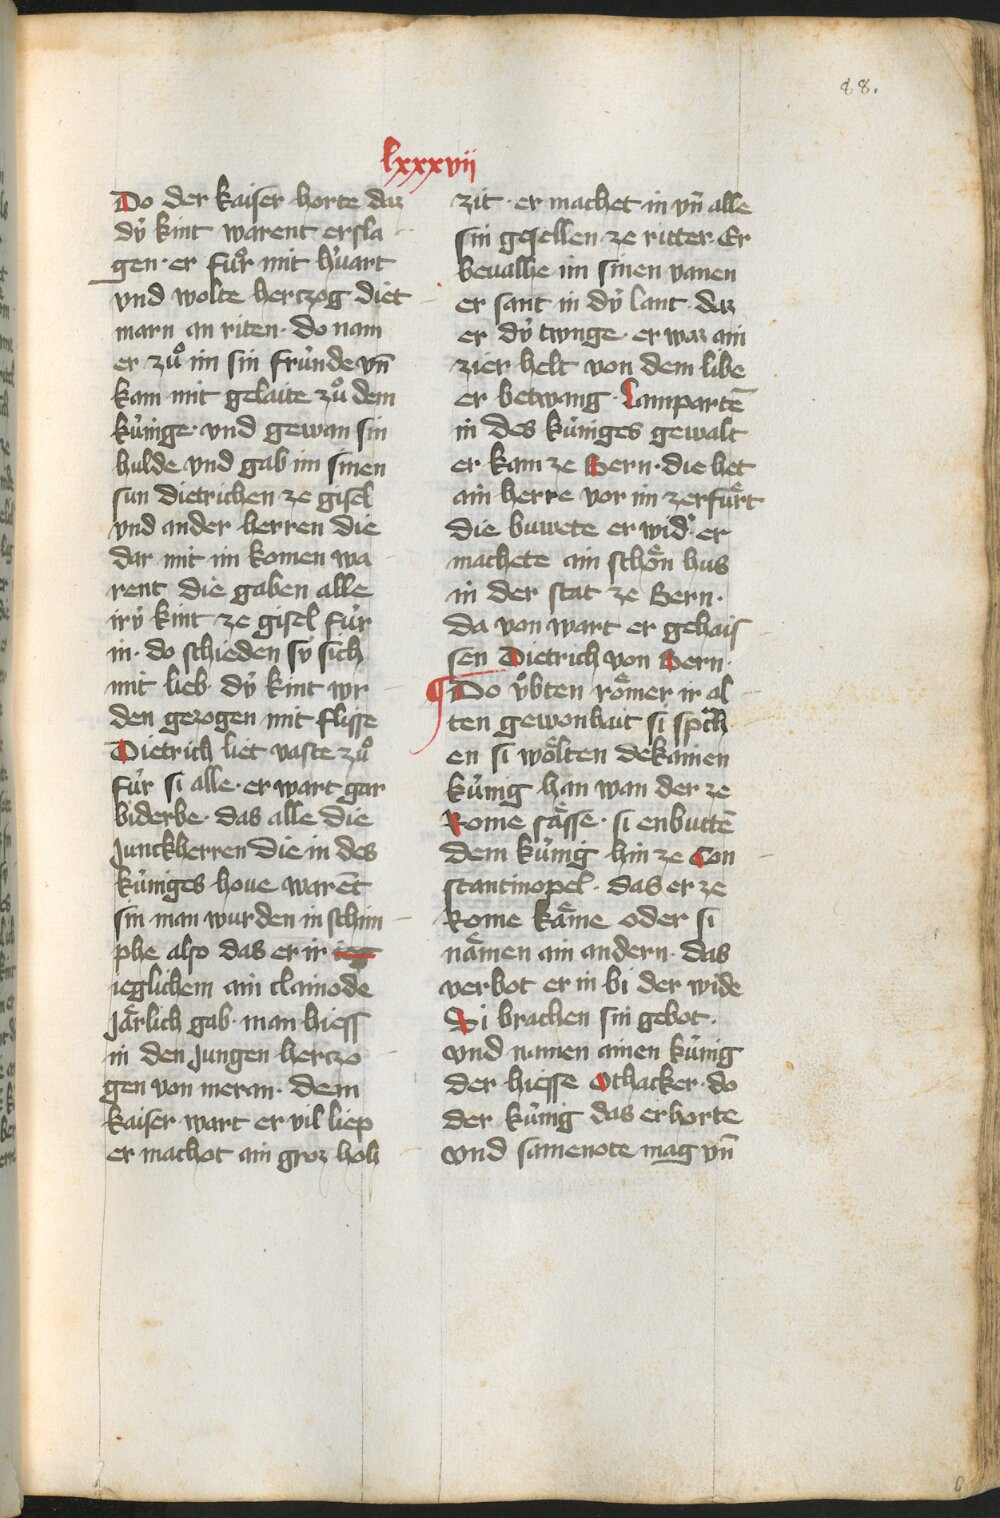 88.
lxxxvii
Do der kaiser horte daz
dÿ kint warent ersla
gen · er fuͦr mit hv́art
vnd wolte hertzog diet
marn an riten · do nam
er zuͦ im sin frúnde vn̄
kam mit gelaite zuͦ dem
kúnige · vnd gewan sin
hulde vnd gab im sinen
sun dietrichen ze gisel
vnd ander herren die
dar mit im komen wa
rent die gaben alle
irÿ kint ze gisel fúr
in · do schieden sÿ sich
mit lieb dÿ kint wr
den gezogen mit flisse
Dietrich liet vaste zuͦ
fúr si alle · er wart gar
biderbe · das alle die
Junckherren die in des
kúniges houe warēt
sin man wurden in schim
phe also das er ir
ieglichem ain clainode
Jaͤrlich gab · man hiess
in den Jungen hertzo
gen von meran · dem
kaiser wart er vil liep
er machot ain groz hoh
zit · er machet in vn̄ alle
sin gesellen ze ritter · Er
beualhe im sinen vanen
er sant in dÿ lant · daz
er dÿ twnge · er waz ain
zier helt von dem libe
er betwang · Lampartē
in des kúniges gewalt
er kam ze Bern · die het
ain herre vor im zerfuͤrt
die buwete er wid' · er
machete ain schoͤn hus
in der stat ze Bern ·
da von wart er gehais
sen Dietrich von Bern ·
¶ Do v́bten roͤmer ir al
ten gewonhait si sprach
en si woͤlten dekainen
kúnig han wan der ze
Rome saͤsse · si enbuttē
dem kúnig hin ze Con
stantinopel · das er ze
Rome kaͤme oder si
naͤmen ain andern · das
verbot er in bi der wide
Si brachen sin gebot ·
vnd namen ainen kúnig
der hiesse Othacker · do
der kúnig das erhorte
vnd samenote mag vn̄